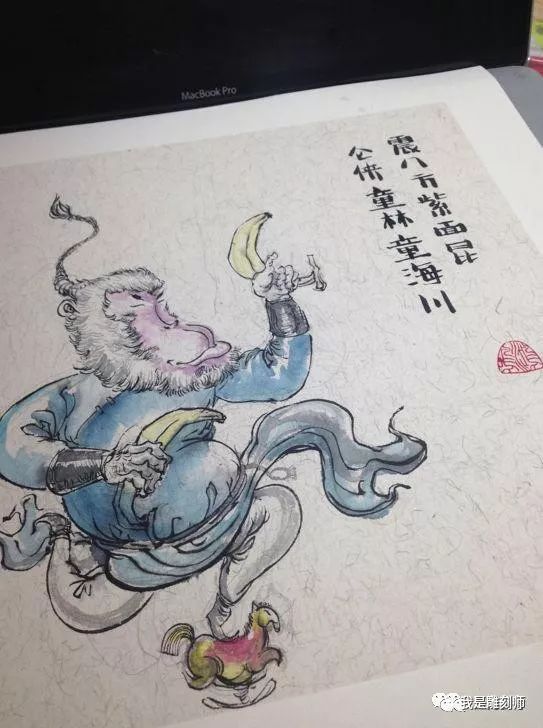 MacBook Pro
震八方紫面昆
仑侠童林童海川
我是雕刻师